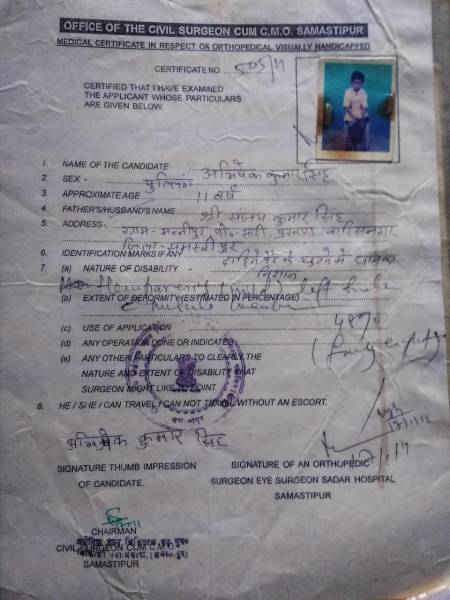 OFFICE OF THE CIVIL SURGEON CUM C.M.O. SAMASTIPUR
MEDICAL CERTIFICATE IN RESPECT OR ORTHOPEDICAL VISUALLY HANDICAPPED
CERTIFICATE NO. 505/11
CERTIFIED THAT I HAVE EXAMINED
THE APPLICANT WHOSE PARTICULARS
ARE GIVEN BELOW.
1. NAME OF THE CANDIDATE अभिषेक कुमार सिंह
2. SEX - पुल्लिंग
3. APPROXIMATE AGE 11 वर्ष
4. FATHER'S/HUSBAND'S NAME श्री संजय कुमार सिंह
5. ADDRESS- ग्राम- वारिसनगर
जिला-समस्तीपुर
6. IDENTIFICATION MARKS IF ANY दाहिने पैर के घुटने में
निशान
7. (a) NATURE OF DISABILITY - (mild) left
(b) EXTENT OF DEFORMITY (ESTIMATED IN PERCENTAGE)
(c) USE OF APPLICATION 48%
(d) ANY OPERATION DONE OR INDICATED (forty eight)
(e) ANY OTHER PARTICULARS TO CLEARLY THE
NATURE AND EXTENT OF DISABILITY THAT
SURGEON MIGHT LIKE TO POINT.
8. HE / SHE / CAN TRAVEL / CAN NOT TRAVEL WITHOUT AN ESCORT.
अभिषेक कुमार सिंह
SIGNATURE THUMB IMPRESSION
OF CANDIDATE.
SIGNATURE OF AN ORTHOPEDIC
SURGEON EYE SURGEON SADAR HOSPITAL
SAMASTIPUR
CHAIRMAN
CIVIL SURGEON CUM C.M.O.
SAMASTIPUR